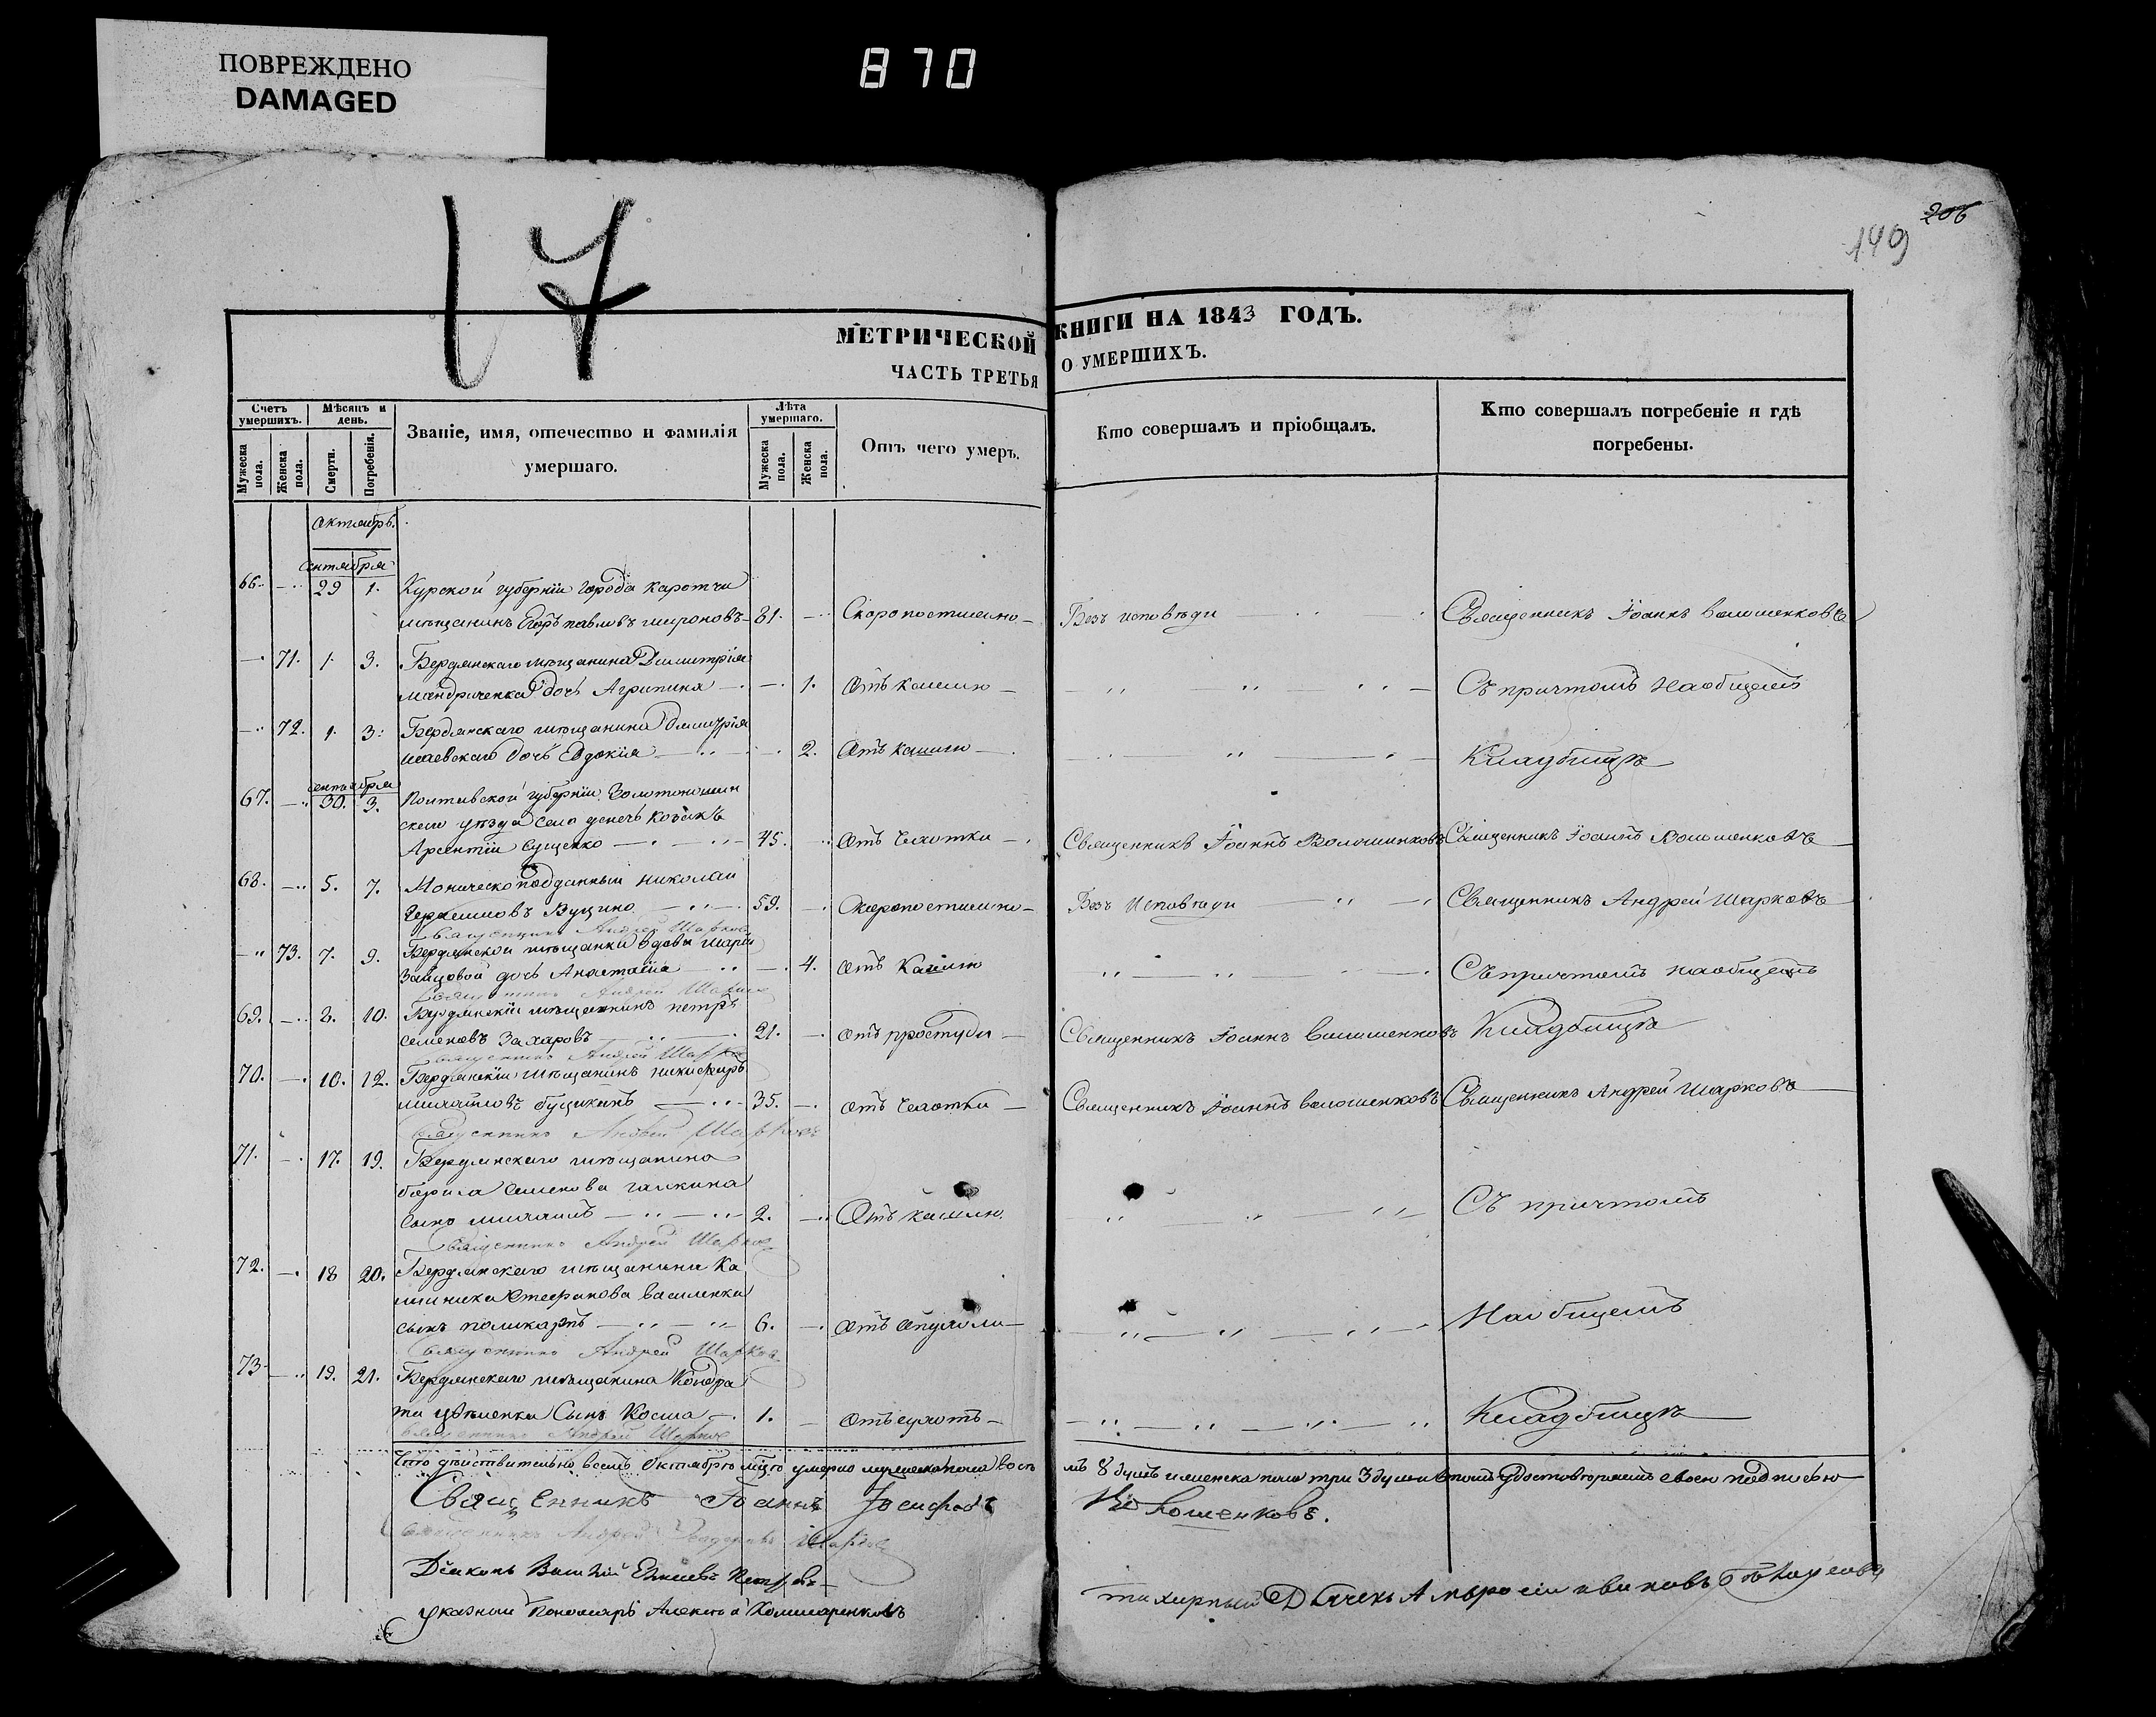 ПОВРЕЖДЕНО
DAMAGED
870
17
206
149
МЕТРИЧЕСКОЙ КНИГИ НА 1843 ГОДЪ.
ЧАСТЬ ТРЕТЬЯ О УМЕРШИХЪ.
Счетъ умершихъ.
Мужеска пола.
Женска пола.
Мѣсяцъ и день.
Смерти.
Погребенія.
Званіе, имя, отечество и фамилія умершаго.
Лѣта умершаго.
Мужеска пола.
Женска пола.
Отъ чего умеръ.
Кто совершалъ и пріобщалъ.
Кто совершалъ погребеніе и гдѣ погребены.
октябрь.
сентября
66. 29 1. Курской губерніи города Каротчи
мѣщанинъ Егоръ павловъ мироновъ 81. Скоропостижно Безъ исповѣди Священникъ Іоаннъ волошенковъ
71. 1. 3. Бердянскаго мѣщанина Димитрія
дочь Агрипина 1. отъ кашлю Съ причтомъ на общемъ
72. 1. 3. Бердянскаго мѣщанина Дмитрія
дочь Евдокія 2. отъ кашлю Кладбищѣ
сентября
67. 30. 3. Полтавской губерніи Золотоношин
скаго уѣзда села козакъ
Арсентій сущенко 45. отъ чахотки Священникъ Іоаннъ Волошинковъ Священникъ Іоаннъ Волошенковъ
68. 5. 7. подданный николай
Герасимовъ 59. Скоропостижно Безъ исповѣди Священникъ Андрей Шарковъ
Священникъ Андрей Шарковъ
73. 7. 9. Бердянской мѣщанки вдовы маріи
Зайцовой дочь Анастасія 4. отъ кашлю Съ причтомъ на общемъ
Священникъ Андрей Шарковъ
69. 8. 10. Бердянскій мѣщанинъ петръ
семеновъ Захаровъ 21. отъ простуды Священникъ Іоаннъ волошенковъ Кладбищѣ
Священникъ Андрей Шарковъ
70. 10. 12. Бердянскій мѣщанинъ никифоръ
михайловъ 35. отъ чахотки Священникъ Іоаннъ волошенковъ Священникъ Андрей Шарковъ
Священникъ Андрей Шарковъ
71. 17. 19. Бердянскаго мѣщанина
семенова галкина
сынъ михаилъ 2. отъ кашлю Съ причтомъ
Священникъ Андрей Шарковъ
72. 18 20. Бердянскаго мѣщанина Ка
Стефанова василенка
сынъ поликарпъ 6. отъ опухоли На общемъ
Священникъ Андрей Шарковъ
73 19. 21. Бердянскаго мѣщанина Кондра
та сынъ Косма 1. Кладбищѣ
Священникъ Андрей Шарковъ
Что дѣйствительно всемъ Октябрѣ умерло мужеска пола восемъ 8 душъ и женска пола три 3 души втомъ удостовѣряемъ своею подписью
Священникъ Іоаннъ Іосифовъ Волошенковъ.
Священникъ Андрей Шарковъ
Діаконъ Василій
указный Пономарь Алексей
Дьячекъ Амвросій